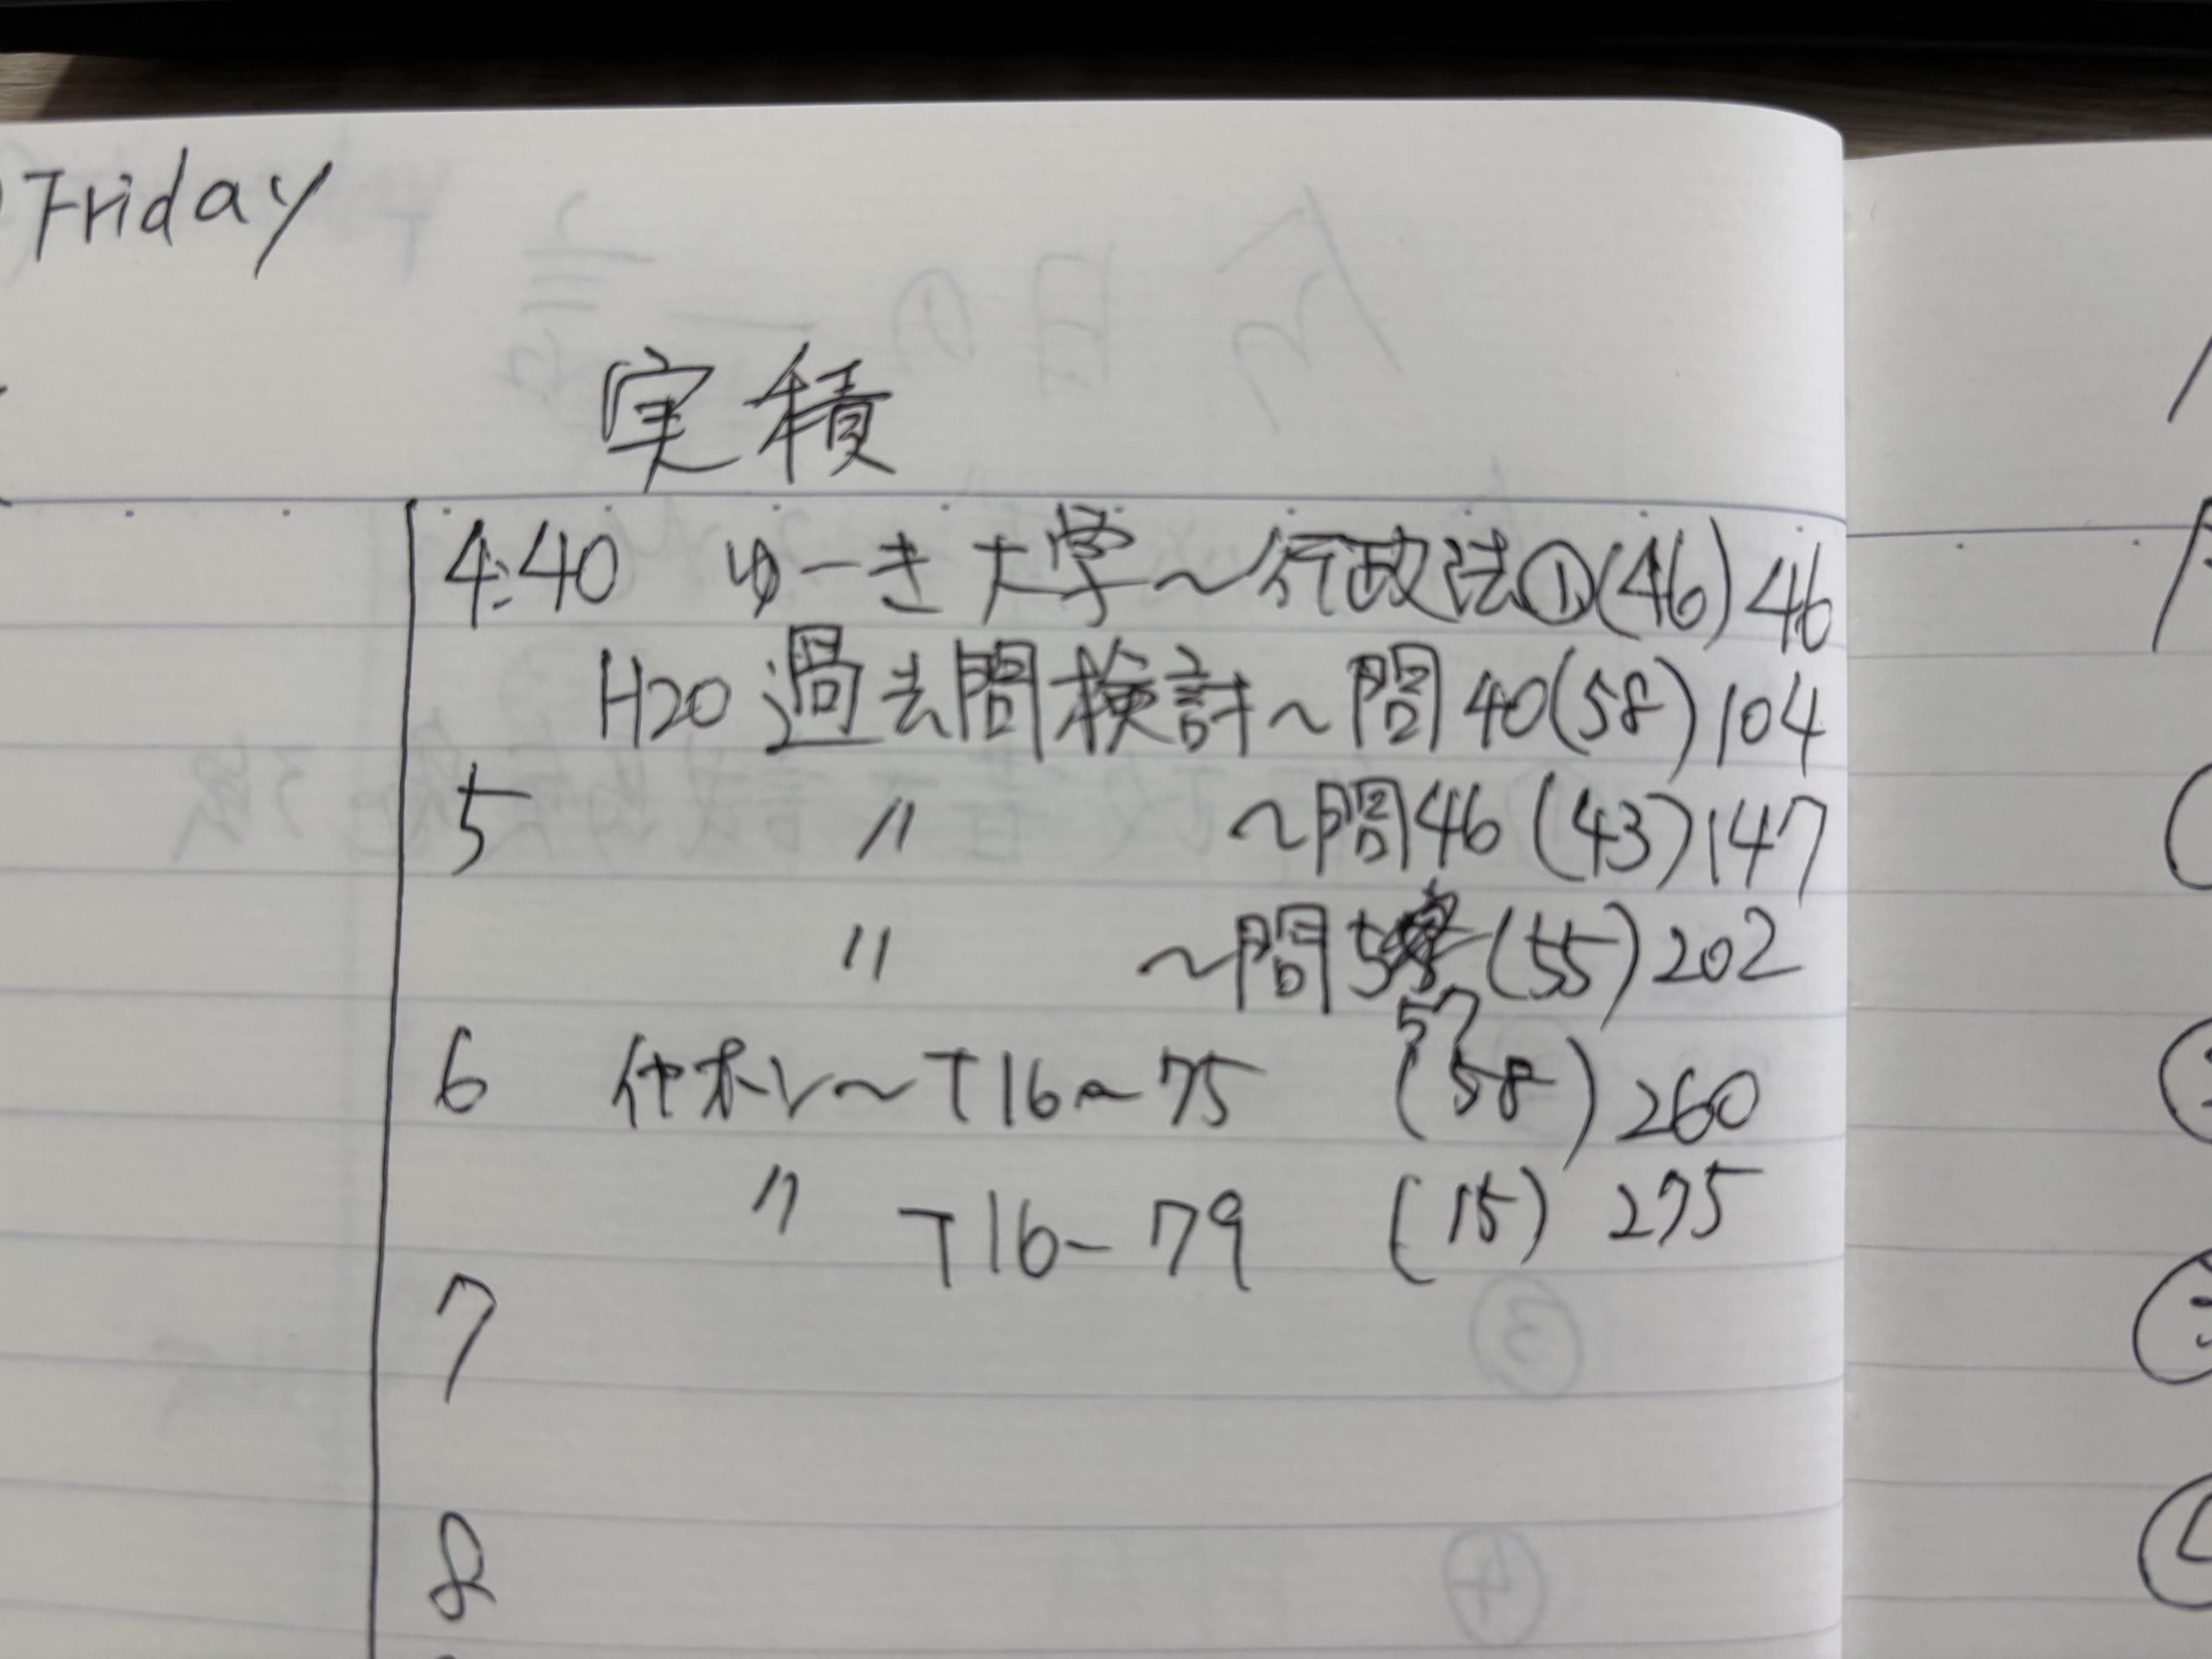 Friday
実積
4:40 ゆーき大学〜行政法①(46)46
H20過去問検討〜問40(58)104
5 〃 〜問46(43)147
〃 〜問5 (55)202
57
6 〜T16〜75 (58)260
〃 T16-79 (15)275
7
8